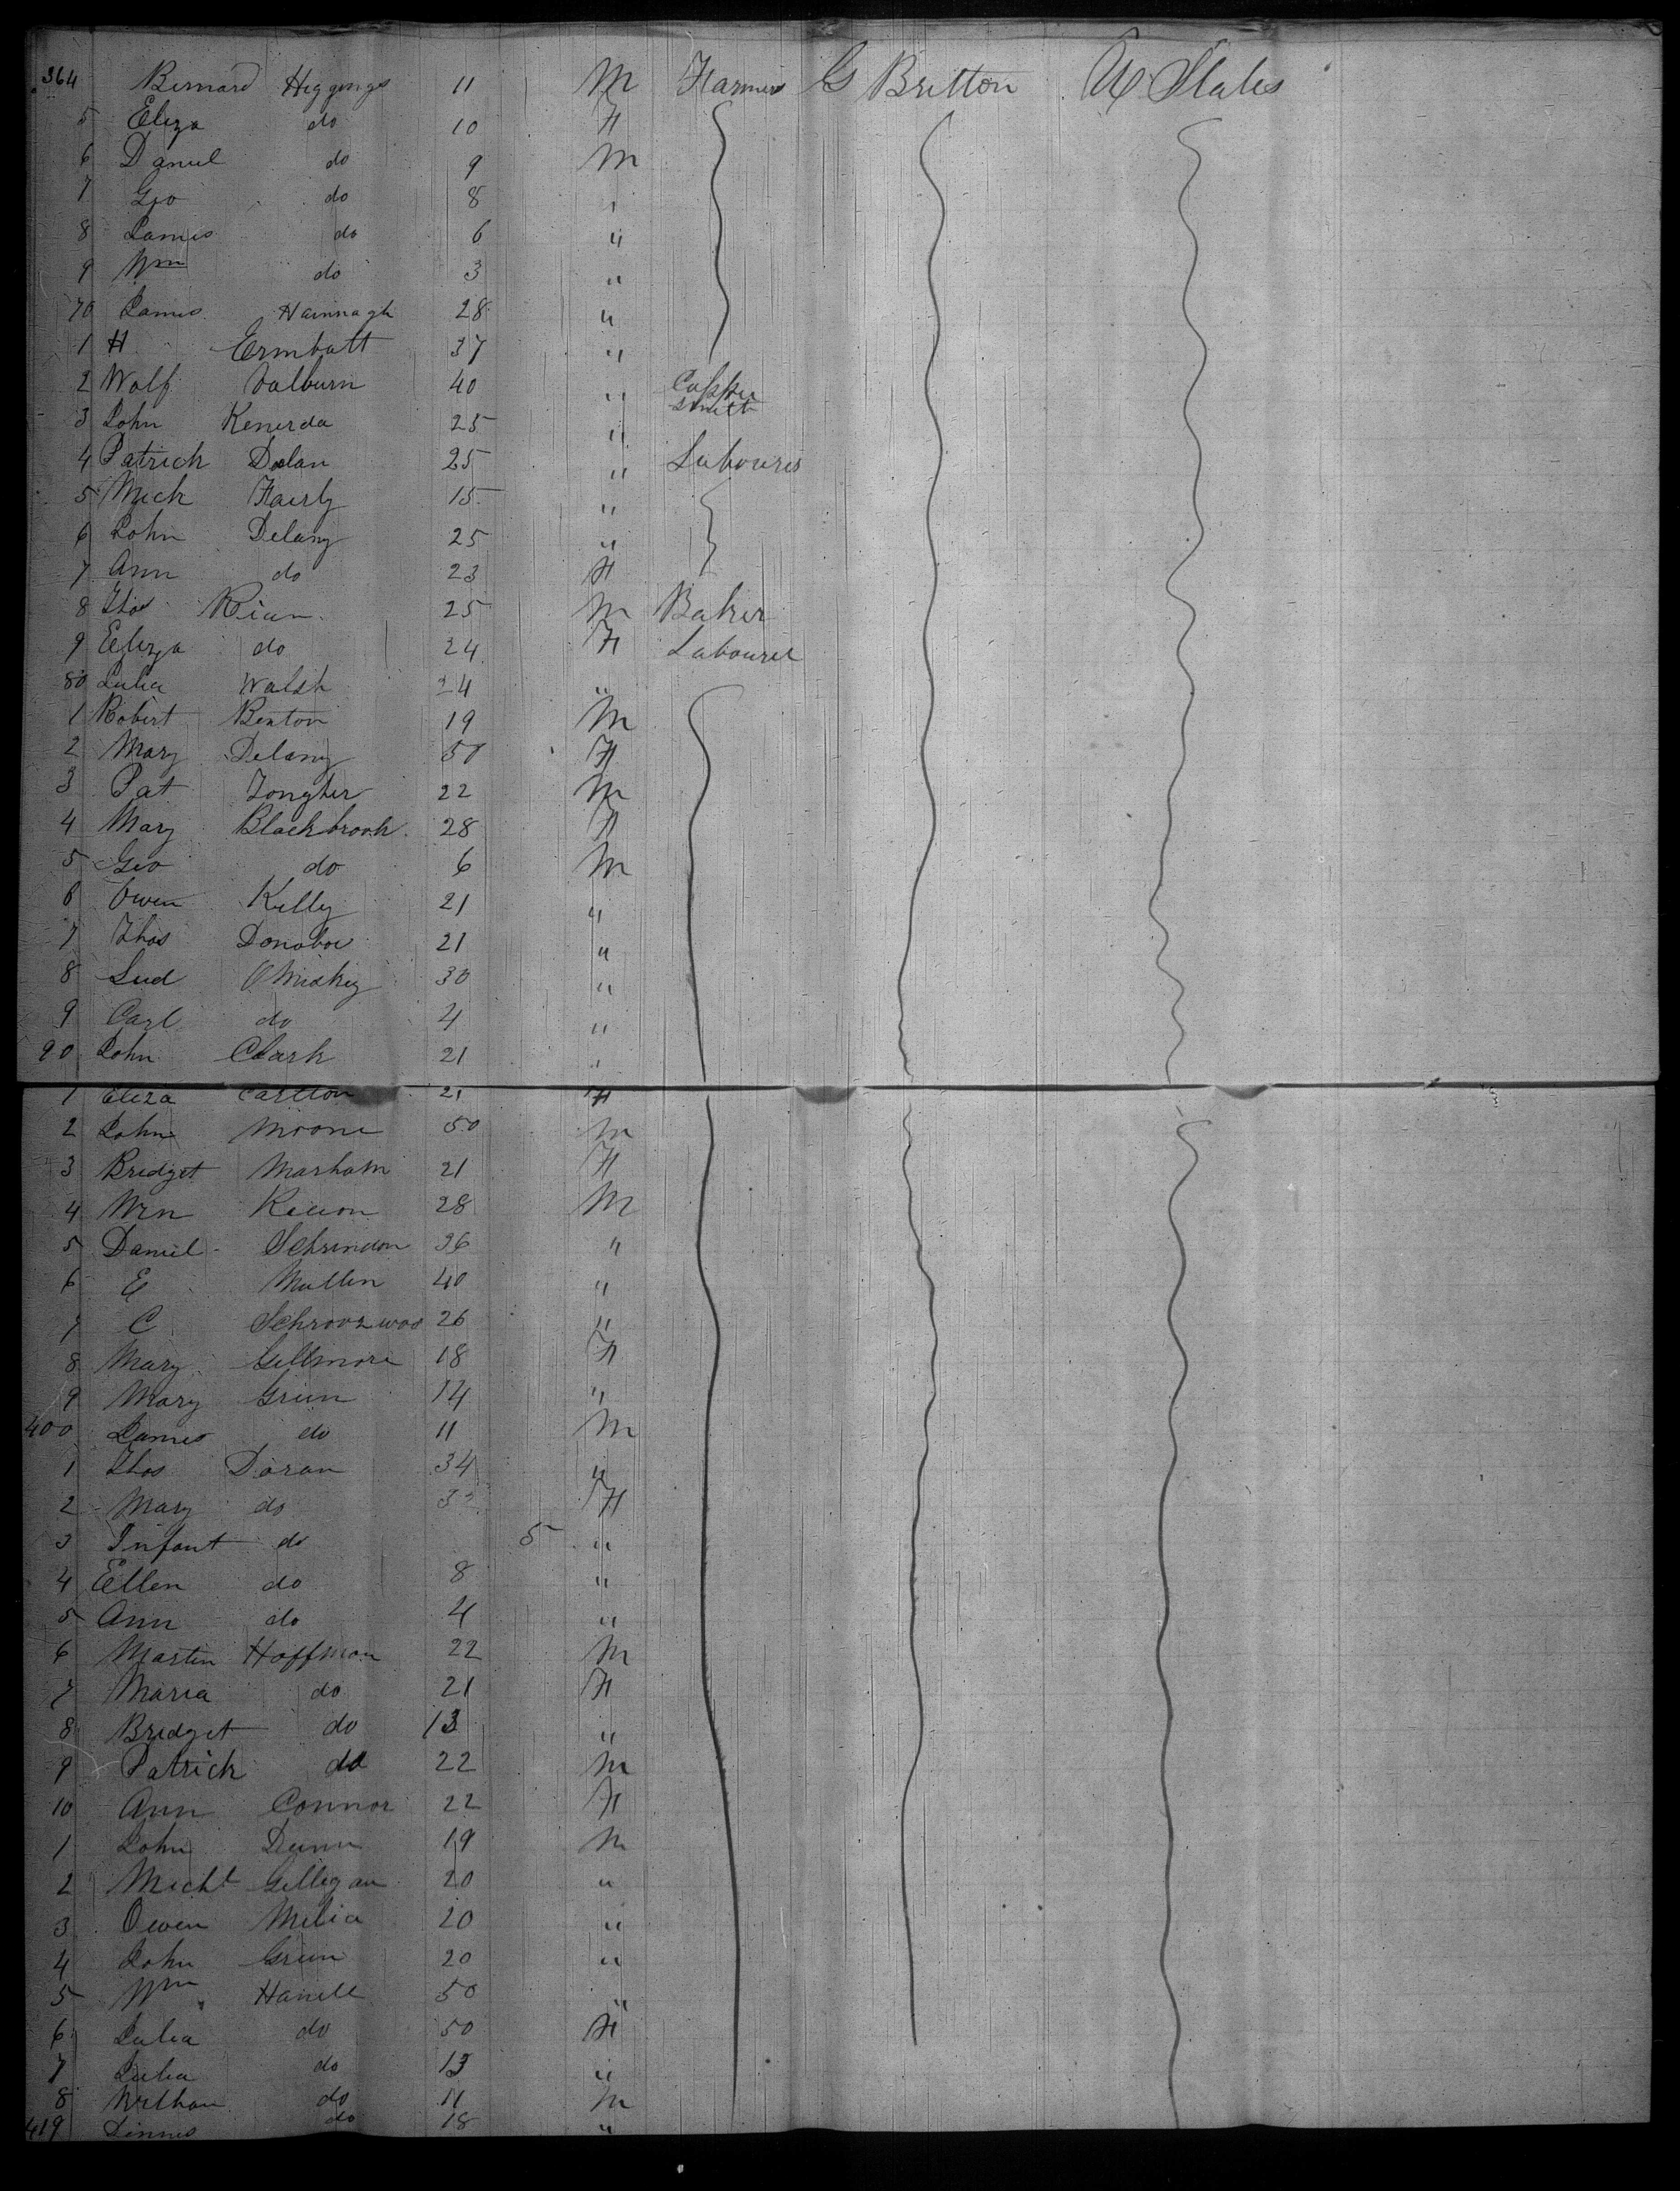 364 Bernard Higgings 11 M Farmer G Britton U States
5 Eliza do 10 F
6 Daniel do 9 M
7 Geo do 8 "
8 James do 6 "
9 Wm do 3 "
70 James Hannagh 28 "
1 H Ermbatt 37 "
2 Wolf Valburn 40 " Copper Smith
3 John Kenerda 25 "
4 Patrick Dolan 25 " Labourer
5 Mick Fairly 15 "
6 John Delany 25 "
7 Ann do 23 F
8 Thos Rian 25 M Baker
9 Eliza do 24 F Labourer
80 Julia Walsh 24 "
1 Robert Benton 19 M
2 Mary Delany 50 F
3 Pat 22 M
4 Mary Blackbrook 28 F
5 Geo do 6 M
6 Owen Kelly 21 "
7 Thos Donohoe 21 "
8 30 "
9 Carl do 4 "
90 John Clark 21 "
1 Eliza Carlton 21 F
2 John Moone 50 M
3 Bridget Marham 21 F
4 Wm 28 M
5 Daniel 36 "
6 E Mullen 40 "
7 C 26 "
8 Mary Gillmore 18 F
9 Mary Green 14 "
400 James do 11 M
1 Thos Doran 34 "
2 Mary do 32 F
3 Infant do 5 "
4 Ellen do 8 "
5 Ann do 4 "
6 Martin Hoffman 22 M
7 Maria do 21 F
8 Bridget do 13 "
9 Patrick do 22 M
10 Ann Connor 22 F
1 John Dunn 19 M
2 Michl Gilligan 20 "
3 Owen Melia 20 "
4 John Green 20 "
5 Wm 50 "
6 Julia do 50 F
7 Julia do 13 "
8 do 11 M
419 do 18 "